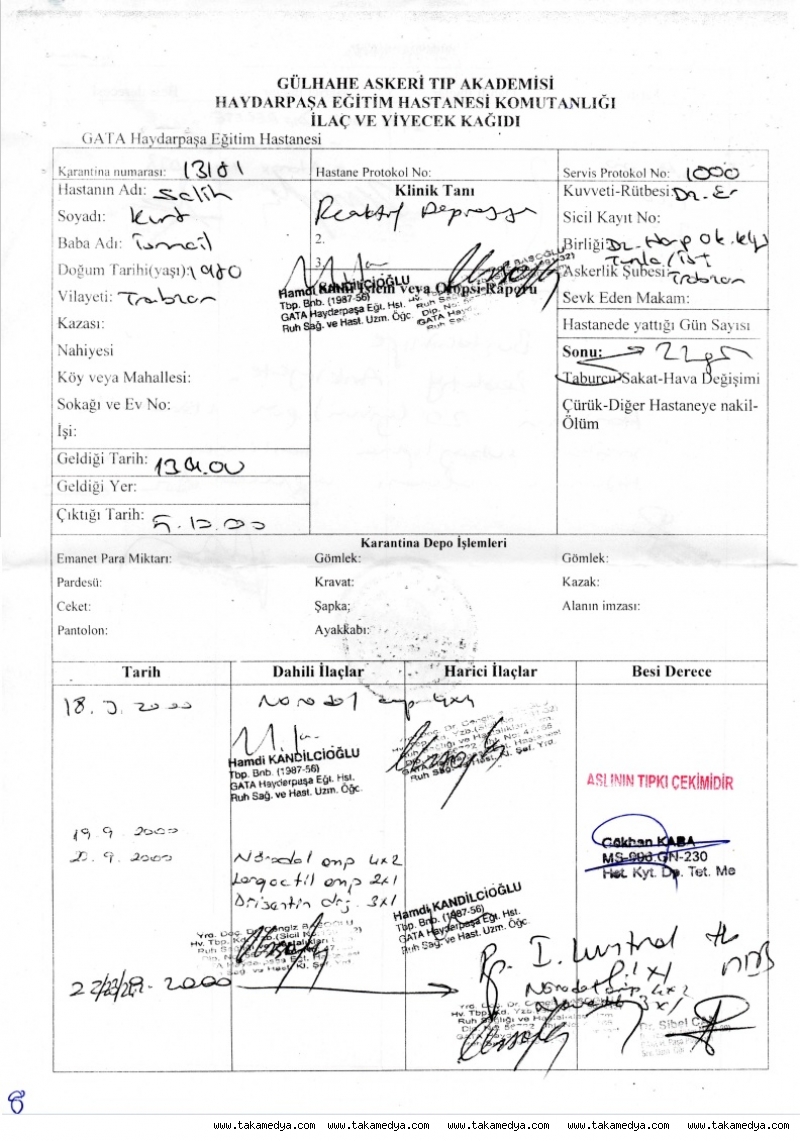 GÜLHAHE ASKERİ TIP AKADEMİSİ
HAYDARPAŞA EĞİTİM HASTANESİ KOMUTANLIĞI
İLAÇ VE YİYECEK KAĞIDI
GATA Haydarpaşa Eğitim Hastanesi
Karantina numarası: 13181
Hastane Protokol No:
Servis Protokol No: 1000
Hastanın Adı: Salih
Klinik Tanı
Kuvveti-Rütbesi Dz. Er
Soyadı: Kurt
Reaktif Depresyon
Sicil Kayıt No:
Baba Adı: İsmail
2.
Birliği: Dz. Harp Ok. K.
Tuzla/İst
Doğum Tarihi(yaşı): 1980
3.
Askerlik Şubesi: Trabzon
Vilayeti: Trabzon
veya Otopsi Raporu
Sevk Eden Makam:
Hamdi KANDİLCİOĞLU
Tbp. Bnb. (1987-56)
GATA Haydarpaşa Eğt. Hst.
Ruh Sağ. ve Hast. Uzm. Öğc.
Kazası:
Hastanede yattığı Gün Sayısı
Nahiyesi
Sonu: 22 gün
Köy veya Mahallesi:
Taburcu-Sakat-Hava Değişimi
Sokağı ve Ev No:
Çürük-Diğer Hastaneye nakil-
Ölüm
İşi:
Geldiği Tarih:
Geldiği Yer:
Çıktığı Tarih: 5.10.00
Karantina Depo İşlemleri
Emanet Para Miktarı:
Gömlek:
Gömlek:
Pardesü:
Kravat:
Kazak:
Ceket:
Şapka;
Alanın imzası:
Pantolon:
Ayakkabı:
Tarih
Dahili İlaçlar
Harici İlaçlar
Besi Derece
18.9.2000
Norodol amp 4x4
Hamdi KANDİLCİOĞLU
Tbp. Bnb. (1987-56)
GATA Hayderpaşa Eğt. Hst.
Ruh Sağ. ve Hast. Uzm. Öğc.
ASLININ TIPKI ÇEKİMİDİR
19.9.2000
20.9.2000
Norodol amp 4x2
Largactil amp 2x1
Drj. 3x1
Gökhan KABA
GN-230
Hst. Kyt. Dp. Tet. Me
Hamdi KANDİLCİOĞLU
Tbp. Bnb. (1987-56)
GATA Hayderpaşa Eğt. Hst.
Ruh Sağ. ve Hast. Uzm. Öğc.
2000
I. Lustral tb
1x1
Norodol drip 4x2
3x1
Dr. Sibel
8
www.takamedya.com www.takamedya.com www.takamedya.com www.takamedya.com www.takamedya.com